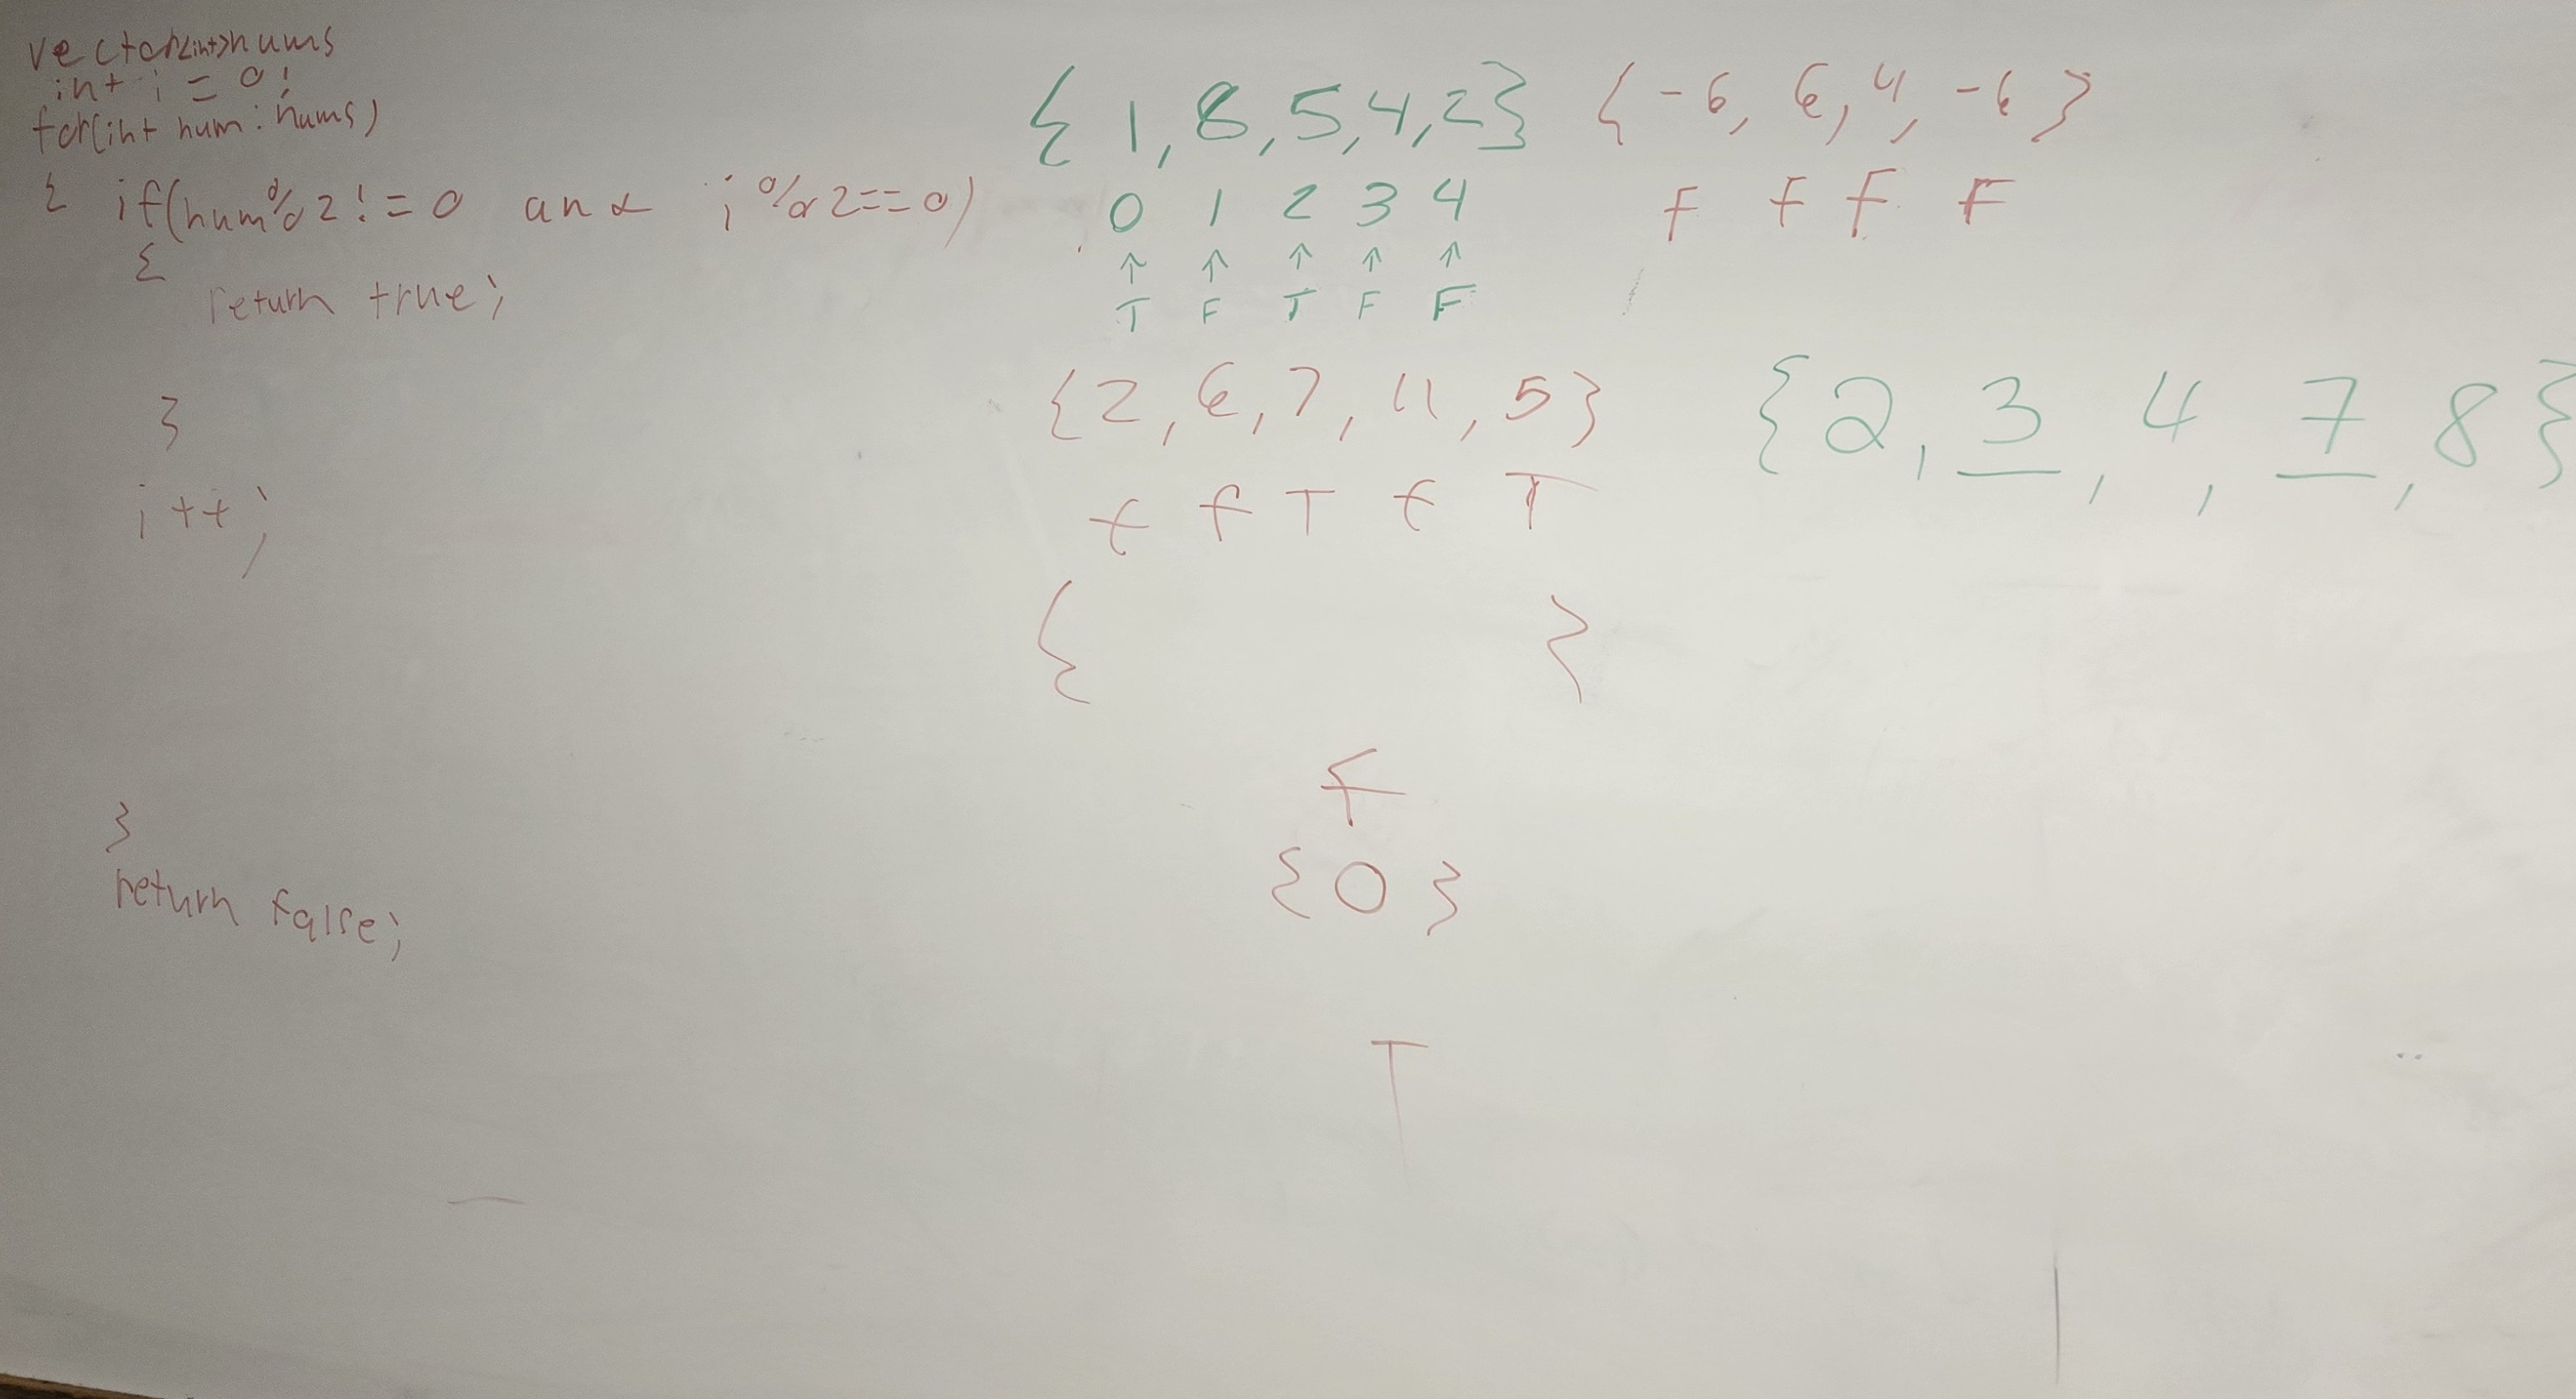 vector<int>nums
int i = 0;
for(int num : nums)
{ if(num%2!=0 and i%2==0)
{
return true;
}
i++;
}
return false;
{1,8,5,4,2}
0 1 2 3 4
↑ ↑ ↑ ↑ ↑
T F T F F
{-6, 6, 4, -6}
F F F F
{2, 6, 7, 11, 5}
f f T f T
{2, 3, 4, 7, 8}
{ }
f
{0}
T